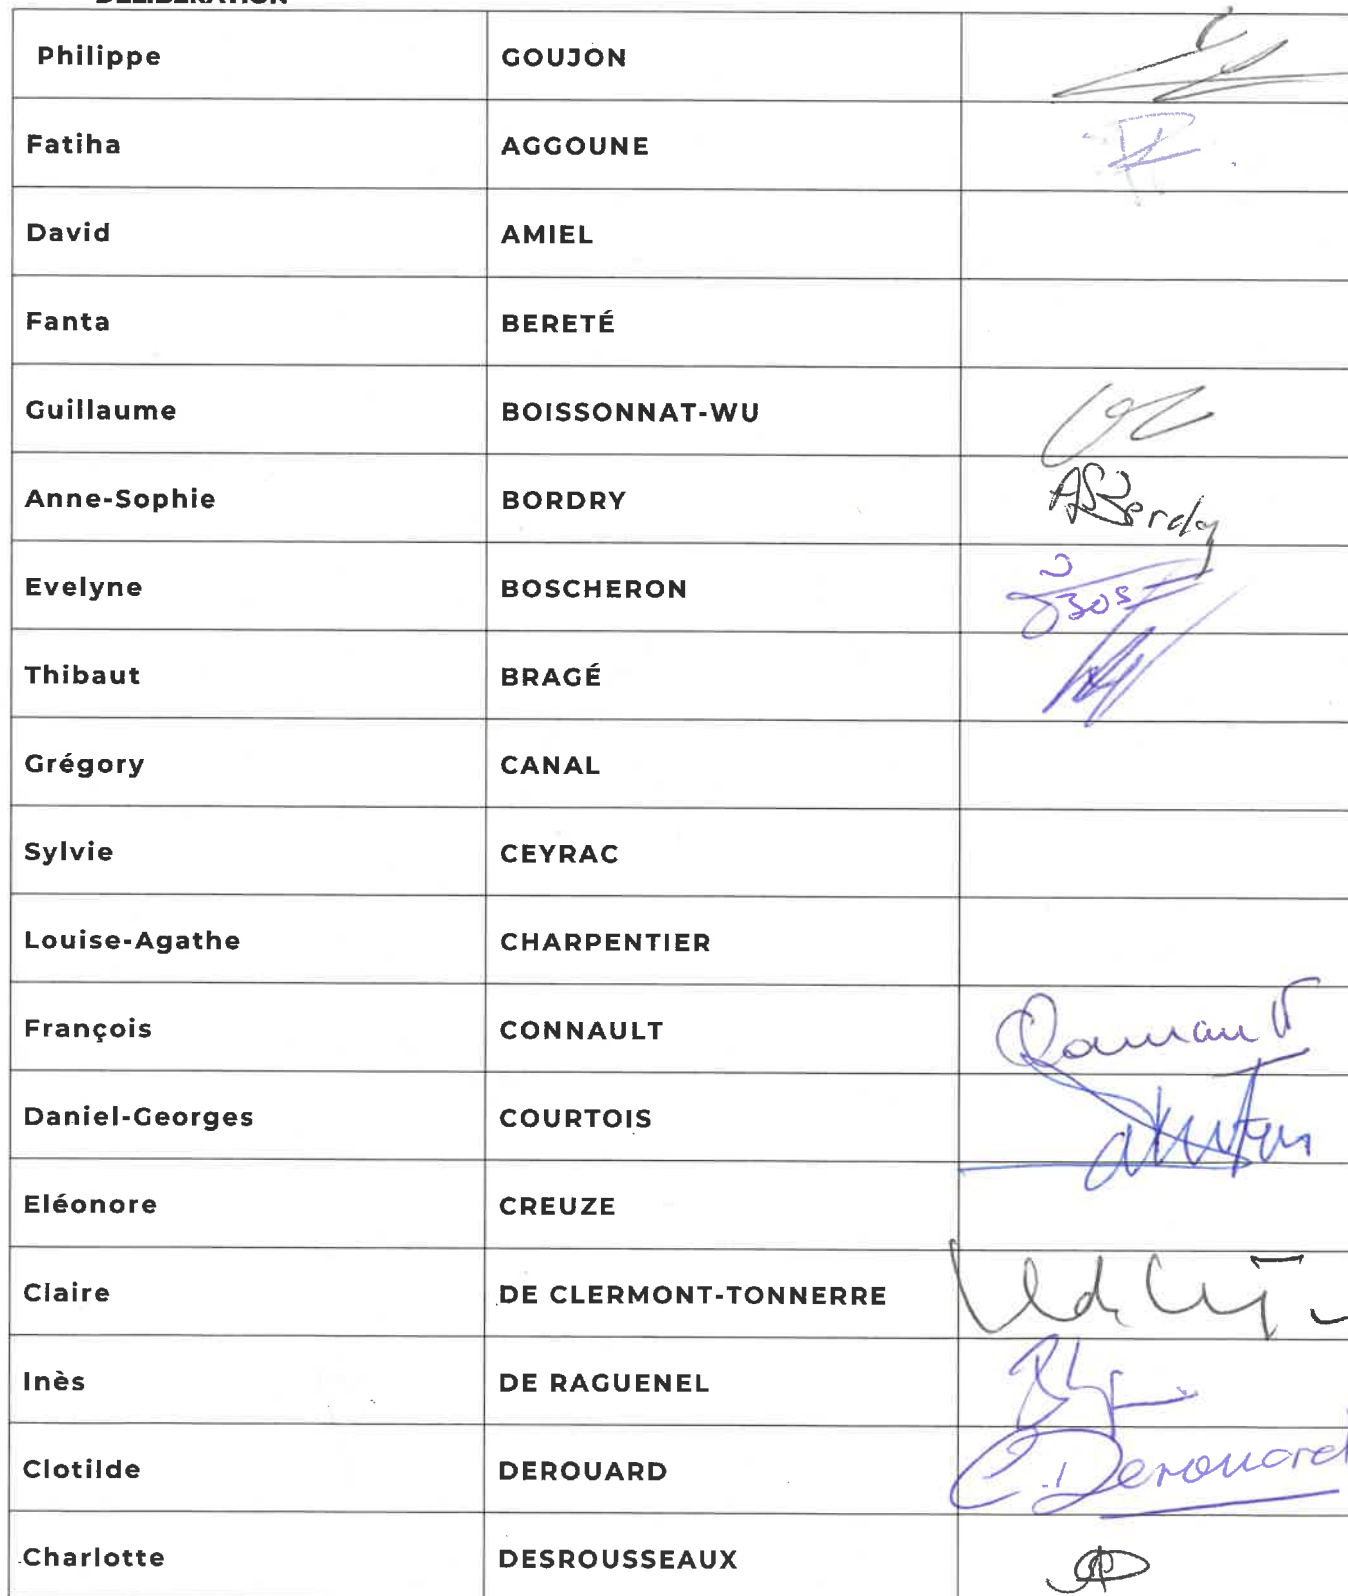 DÉLIBÉRATION
Philippe GOUJON
Fatiha AGGOUNE
David AMIEL
Fanta BERETÉ
Guillaume BOISSONNAT-WU
Anne-Sophie BORDRY
Evelyne BOSCHERON
Thibaut BRAGÉ
Grégory CANAL
Sylvie CEYRAC
Louise-Agathe CHARPENTIER
François CONNAULT
Daniel-Georges COURTOIS
Eléonore CREUZE
Claire DE CLERMONT-TONNERRE
Inès DE RAGUENEL
Clotilde DEROUARD C. Derouard
Charlotte DESROUSSEAUX